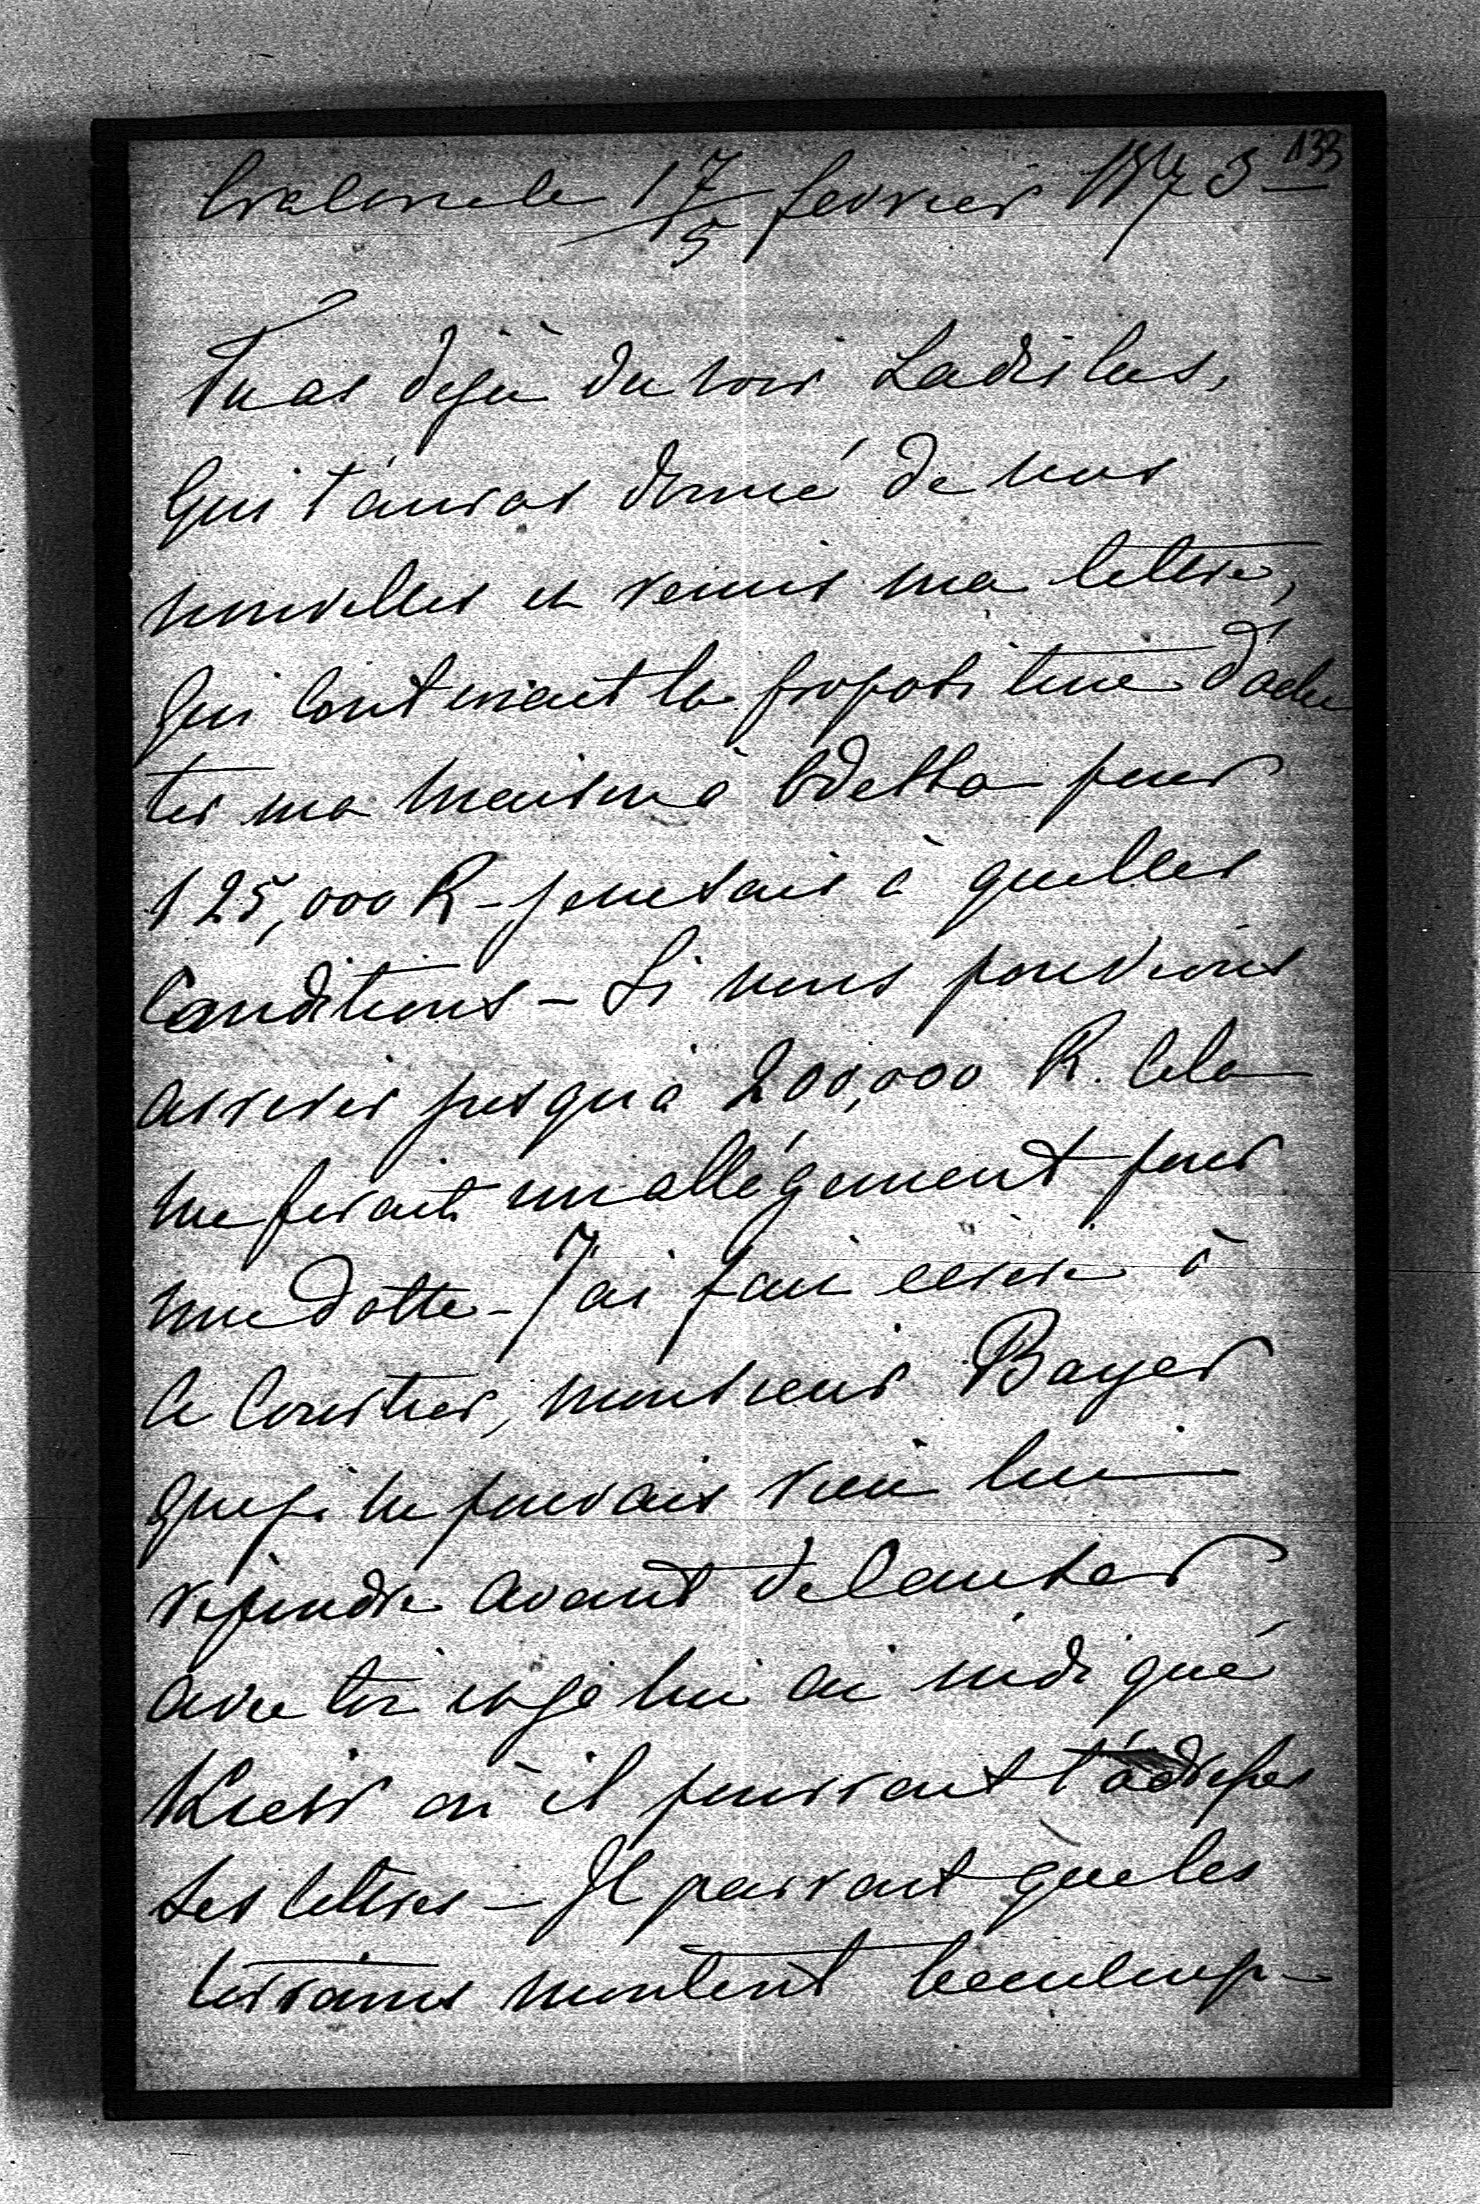 133
Cracovie le 17/5 fevrier 1873
Tu as déjà du voir Ladislas,
qui t'auras donné de nos
nouvelles et remis ma lettre,
qui contenait la proposition d'ache
ter ma maison à Odessa pour
125,000 R - je ne sais à quelles
conditions - Si nous pouvions
arriver jusqu'à 200,000 R. cela
me ferait un allégement pour
une dotte - J'ai fait ecrire à
ce courtier, monsieur Bayer
que je ne pouvais rien lui
repondre avant de causer
avec toi et je lui ai indiqué
Kieir où il pourrait t'adresser
ses lettres - Il parrait que les
terrains montent beaucoup -